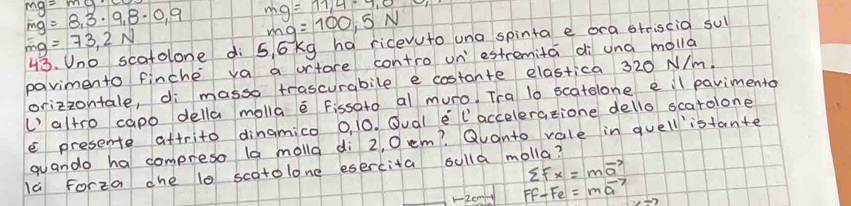 mg = m
mg = 8,3 · 9,8 · 0,9
mg = 11,4 · 9,8
mg = 73,2 N
mg = 100,5 N
43. Uno scatolone di 5,6 kg ha ricevuto una spinta e ora striscia sul
pavimento finché va a urtare contro un' estremità di una molla
orizzontale, di massa trascurabile e costante elastica 320 N/m.
L'altro capo della molla é fissato al muro. Tra lo scatolone e il pavimento
é presente attrito dinamico 0,10. Qual é l'accelerazione dello scatolone
quando ha compreso la molla di 2,0 cm? Quanto vale in quell'istante
la forza che lo scatolone esercita sulla molla?
ΣFx = ma⃗
FF-Fe = ma⃗
2cm